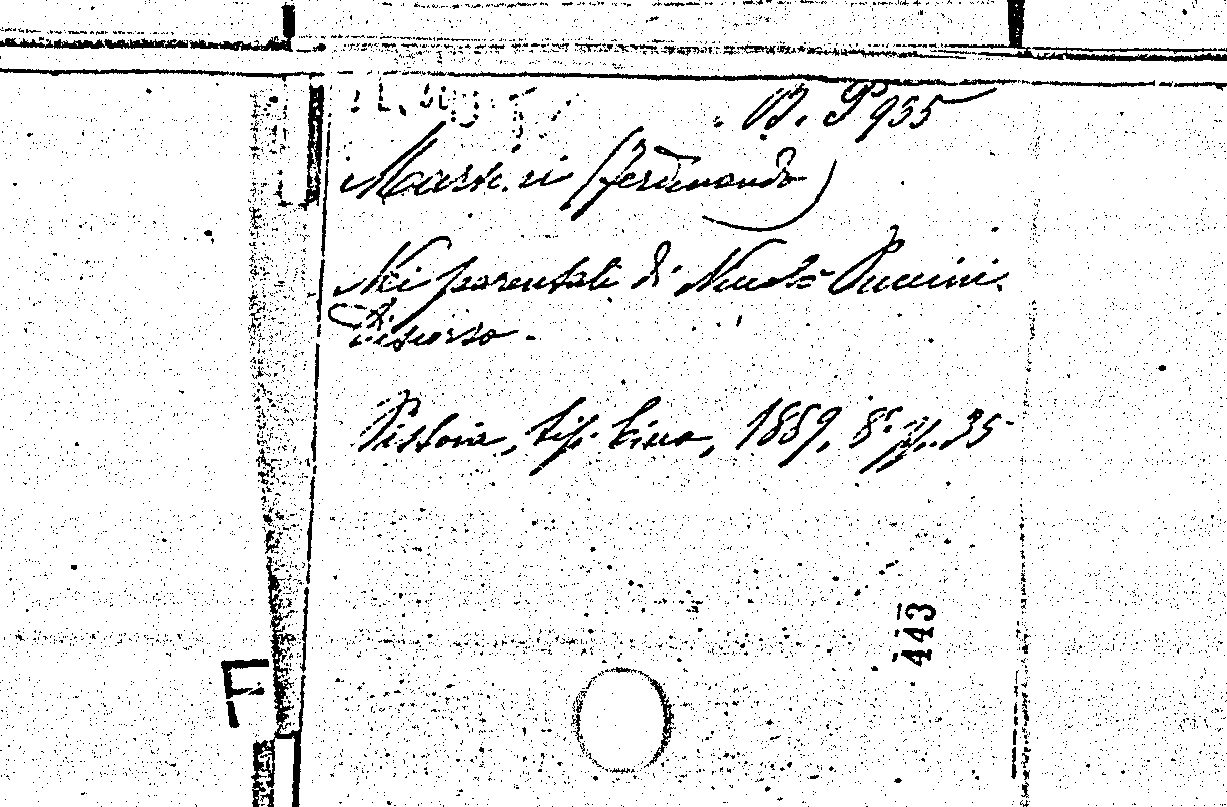 B. P 935
Martini (Ferdinando)
Nei parentali di Niccolò Puccini.
Discorso.
Pistoia, tip. Bino, 1889, 8° pp. 35
443